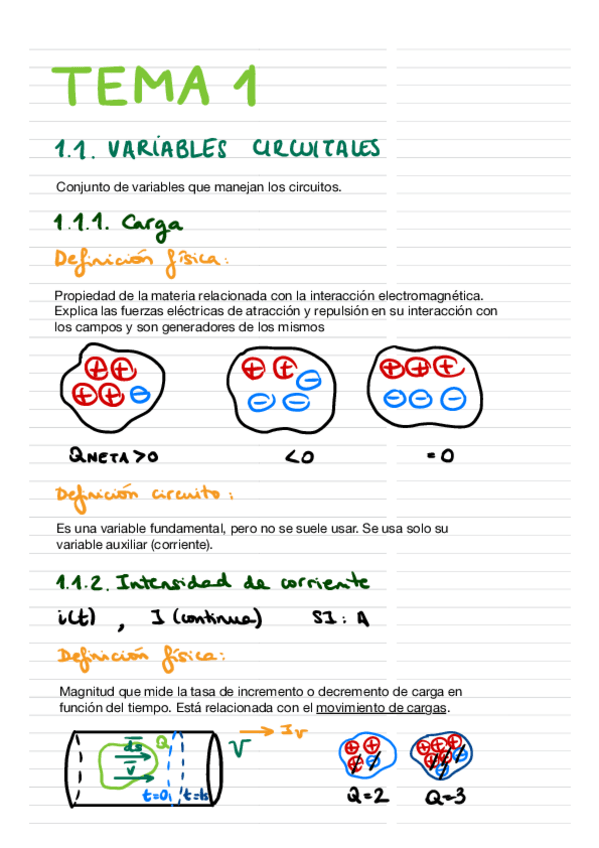 TEMA 1
1.1. VARIABLES CIRCUITALES
Conjunto de variables que manejan los circuitos.
1.1.1. Carga
Definición física:
Propiedad de la materia relacionada con la interacción electromagnética.
Explica las fuerzas eléctricas de atracción y repulsión en su interacción con
los campos y son generadores de los mismos
+ + + + -
+ + - - -
+ + + - - -
QNETA >0 <0 =0
Definición circuito:
Es una variable fundamental, pero no se suele usar. Se usa solo su
variable auxiliar (corriente).
1.1.2. Intensidad de corriente
i(t) , I (continua) SI: A
Definición física:
Magnitud que mide la tasa de incremento o decremento de carga en
función del tiempo. Está relacionada con el movimiento de cargas.
ds Q V I v
v
t=0 t=1s
Q=2 Q=3